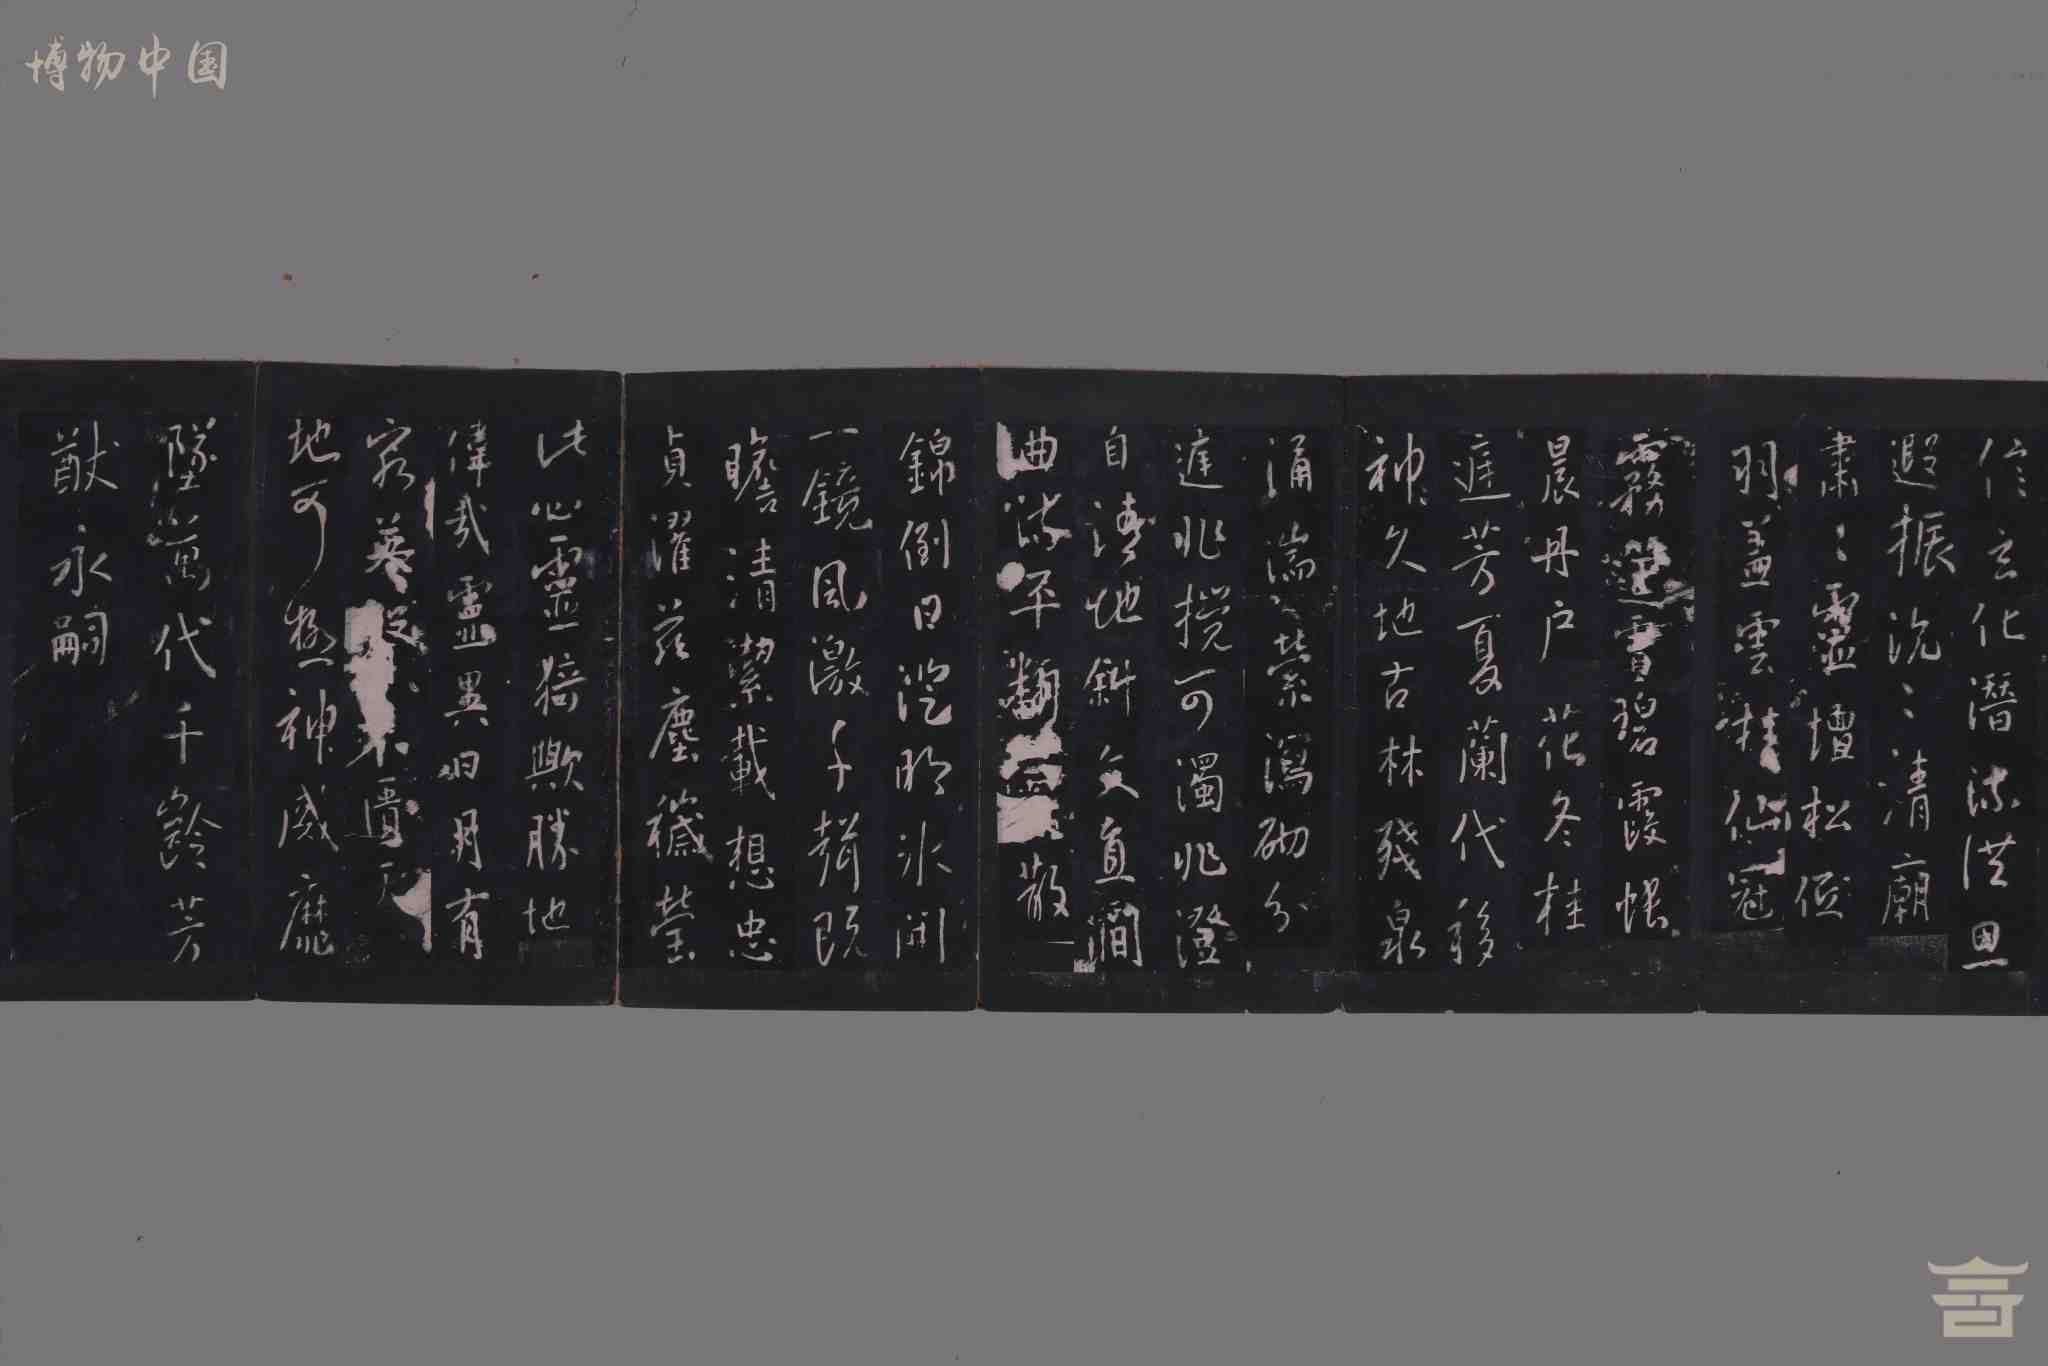 博物中国
信玄化潛流洪恩
遐振沉〻清廟
肅〻靈壇松低
羽蓋雲挂仙冠
霧筵霄碧霞帳
晨丹戶花冬桂
庭芳夏蘭代移
神久地古林殘泉
涌湍縈瀉砌分
庭非攪可濁非澄
自清地斜文直澗
曲流平翻霞散
錦倒日澄明冰開
一鏡風激千聲既
瞻清潔載想忠
貞濯茲塵穢瑩
此心靈猗歟勝地
偉哉靈異日月有
窮英聲不匱天
地可極神威靡
墜萬代千齡芳
猷永嗣